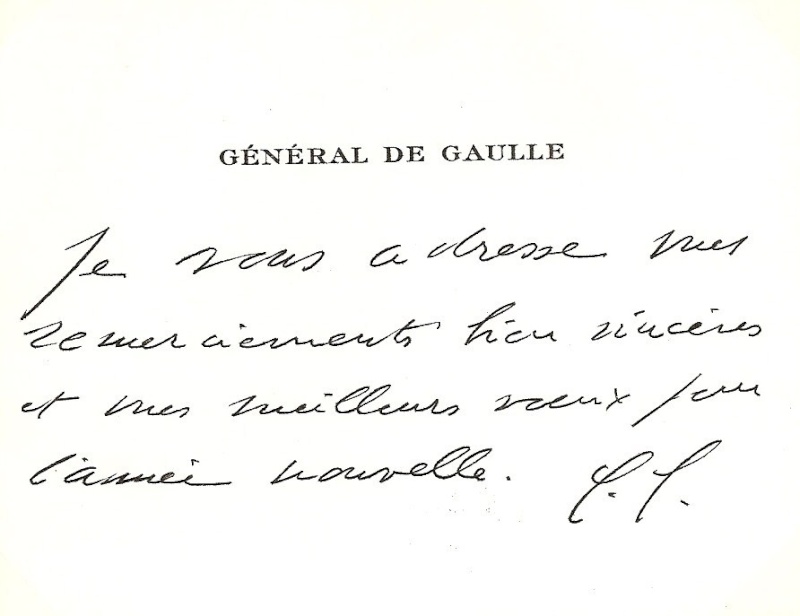 GÉNÉRAL DE GAULLE
Je vous adresse mes
remerciements bien sincères
et mes meilleurs vœux pour
l'année nouvelle. C. G.